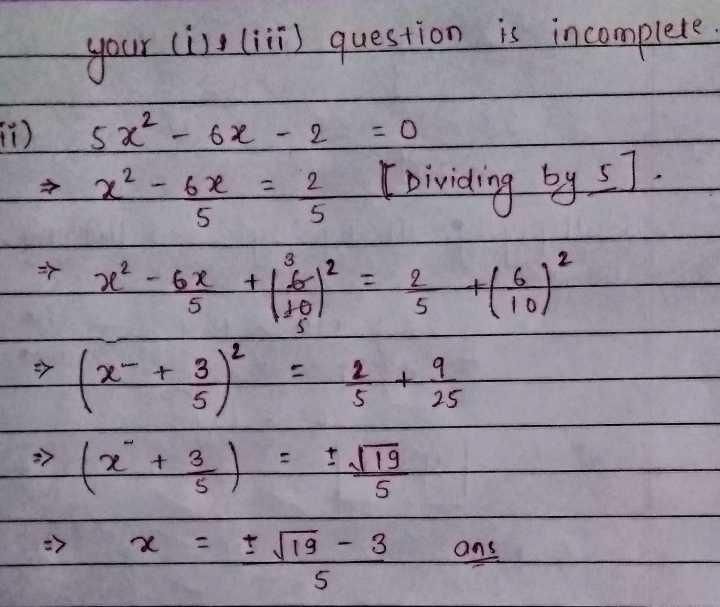 your (i) & (iii) question is incomplete.
ii) 5x² - 6x - 2 = 0
⇒ x² - 6x/5 = 2/5 [Dividing by 5].
⇒ x² - 6x/5 + (6/10)² 3 5 = 2/5 + (6/10)²
⇒ (x⁻ + 3/5)² = 2/5 + 9/25
⇒ (x⁻ + 3/5) = ± √19/5
⇒ x = ± √19 - 3/5 ans